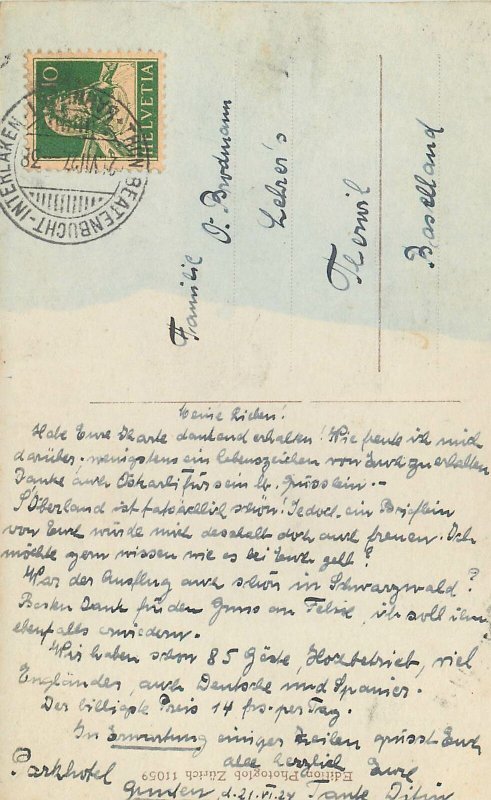 10
HELVETIA
THUN-BEATENBUCHT-INTERLAKEN
Familie
O. Brodmann
Lehrer's
Therwil
Baselland
Meine Lieben!
Habe Eure Karte dankend erhalten! Wie freute ich mich
darüber, wenigstens ein Lebenszeichen von Euch zu erhalten
Danke auch Oskarli für sein lb. Grüsslein.-
S'Oberland ist tatsächlich schön. Jedoch ein Brieflein
von Euch würde mich deshalb doch auch freuen. Ich
möchte gern wissen wie es bei Euch geht?
War der Ausflug auch schön in Schwarzwald?
Besten Dank für den Gruss an Felix, ich soll ihn
ebenfalls erwiedern.
Wir haben schon 85 Gäste, Hoxbetrieb, viel
Engländer, auch Deutsche und Spanier.
Der billigste Preis 14 frs. per Tag.
In Erwartung einiger Zeilen grüsst Euch
alle herzlich Eure
Parkhotel
Gunten, d. 21.VI.27 Tante
Edition Photoglob Zürich 11059